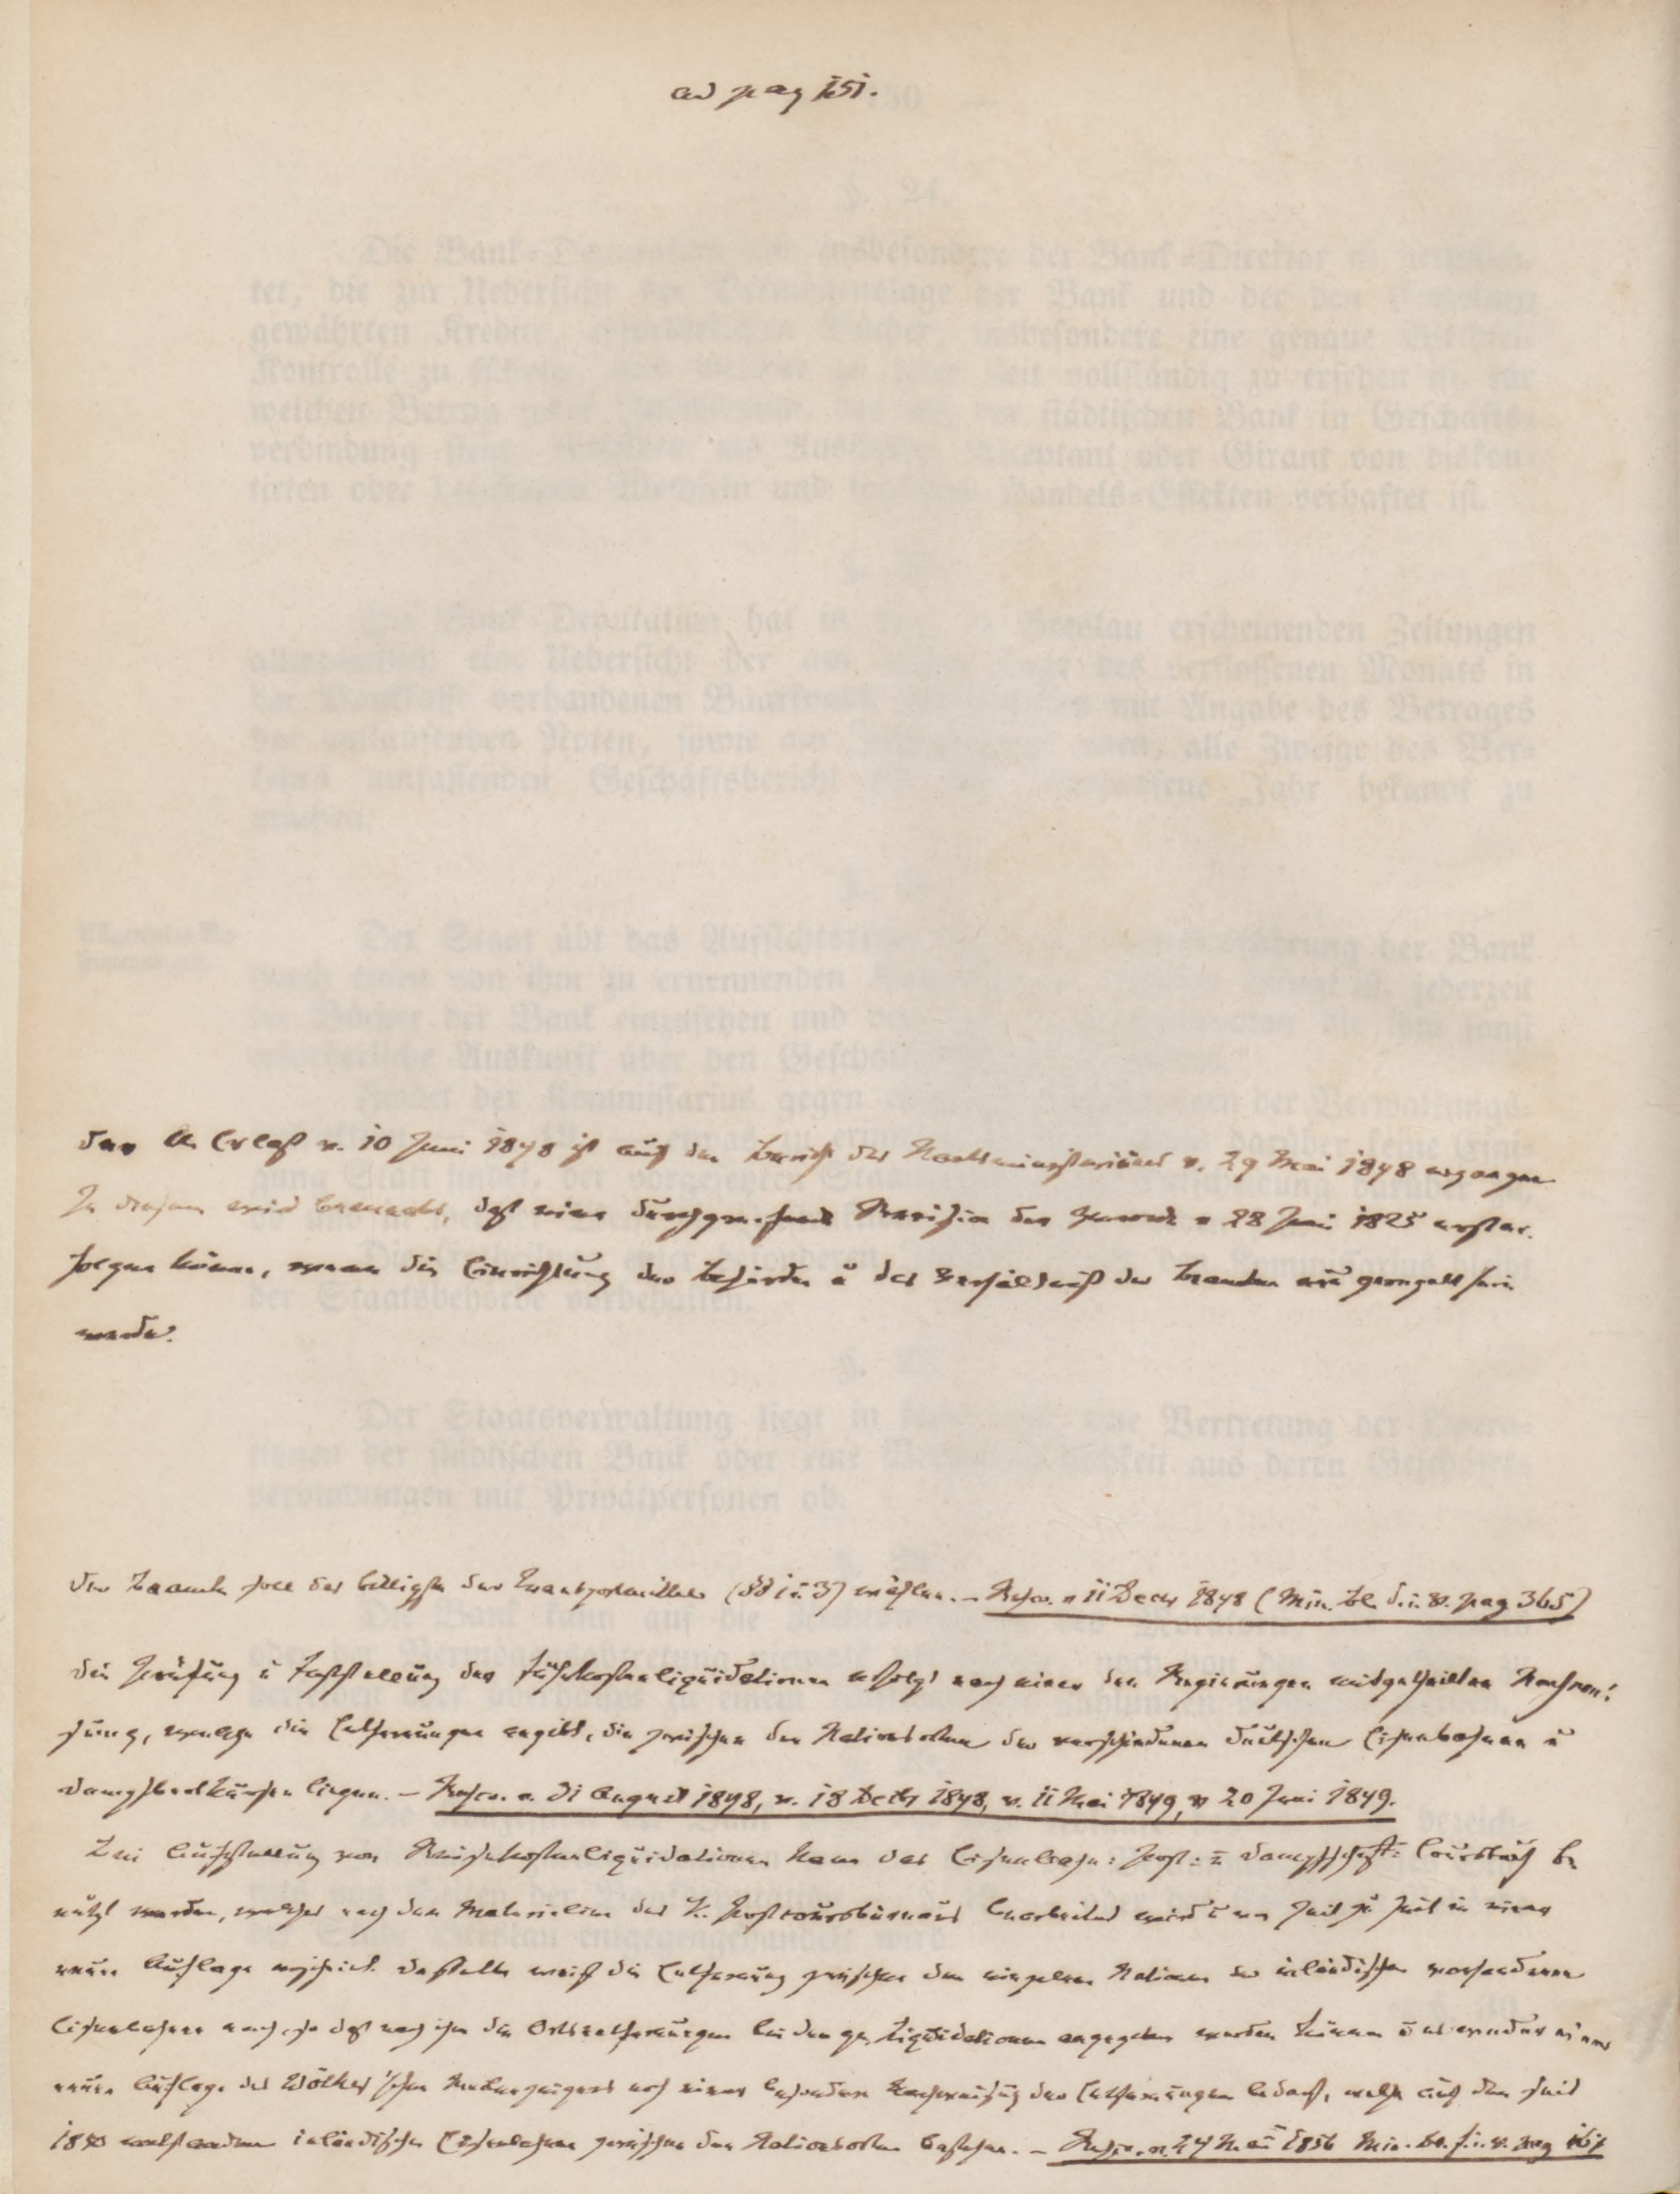 ad pag 151.
Der A. Erlaß v. 10 Juni 1848 ist auf den Bericht des Staatsministeriums v. 29 Mai 1848 ergangen
In diesem wird bemerkt, daß eine durchgreifende Revision der v 28 Juni 1825 erst er-
folgen könne, wenn die Einrichtung der Behörden u das Verhältniß der Beamten neu geregelt sein
werde.
Der Beamte soll das billigste der Transportmittel (§§ 1 u. 3) wählen. – Rescr. v 11 Decbr 1848 (Min. Bl. d. i. V. pag 365)
Die Prüfung u Feststellung der Fuhrkostenliquidationen erfolgt nach einer den Regierungen mitgetheilten Nachwei-
sung, welche die Entfernungen ergibt, die zwischen den Stationsorten der verschiedenen deutschen Eisenbahnen u
Dampfbootkursen liegen. – Rescr. v. 31 August 1848, v. 18 Decbr 1848, v. 11 Mai 1849, v 20 Juni 1849.
Bei Aufstellung von Reisekostenliquidationen kann das Eisenbahn- Post- u Dampfschiff- Coursbuch be
nützt werden, welches nach den Materialien des K. Postcoursbureaus bearbeitet wird u von Zeit zu Zeit in einer
neuen Auflage erscheint. Dasselbe weist die Entfernung zwischen den einzelnen Stationen der inländischen vorhandenen
Eisenbahnen nach, so daß nach ihm die Ortsentfernungen bei den gen. Liquidationen angegeben werden können u es weder einer
neuen Auflage des Wölker'schen noch einer besondern Nachweisung der Entfernungen bedarf, welche auf den seit
1850 entstandenen inländischen Eisenbahnen zwischen den Stationsorten bestehen. – Rescr. v. 24 Mai 1856 Min. Bl. f. i. V. pag 161